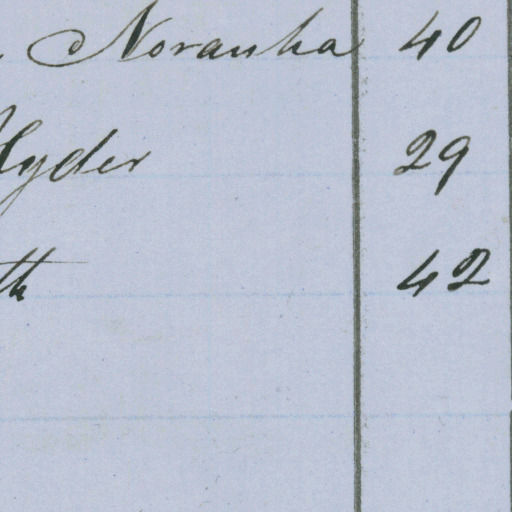 Noranha 40
Hyder 29
th 42